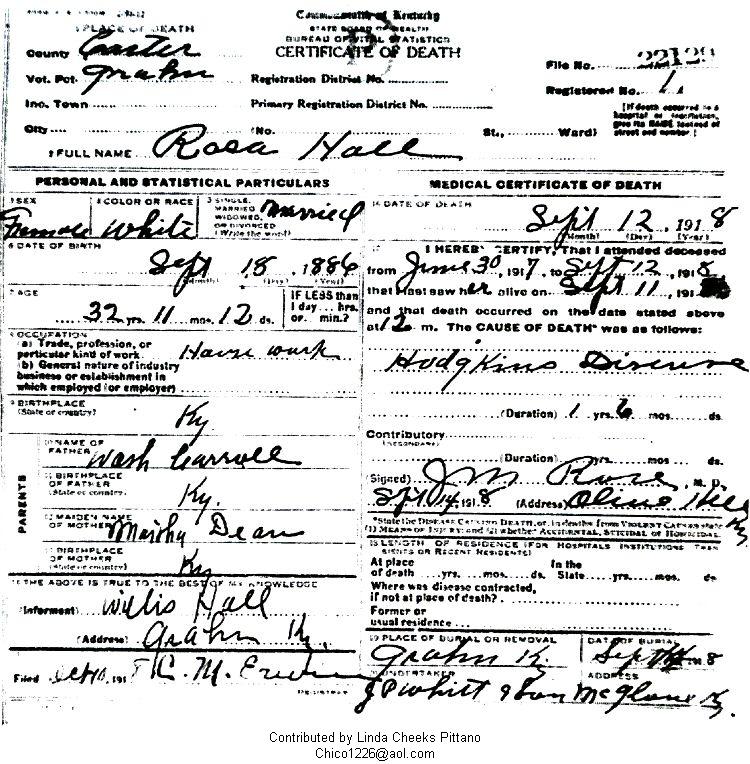 Commonwealth of Kentucky
STATE BOARD OF HEALTH
BUREAU OF VITAL STATISTICS
CERTIFICATE OF DEATH
1 PLACE OF DEATH
County Carter
Vot. Pct. Grahn
Inc. Town
City
Registration District No.
Primary Registration District No.
(No. St., Ward)
File No. 22129
Registered No. 1
[If death occurred in a hospital or institution, give its NAME instead of street and number.]
2 FULL NAME Rosa Hall
PERSONAL AND STATISTICAL PARTICULARS
3 SEX Female
4 COLOR OR RACE White
5 SINGLE, MARRIED, WIDOWED, OR DIVORCED (Write the word) Married
6 DATE OF BIRTH
Sept 18, 1886
(Month) (Day) (Year)
7 AGE
32 yrs. 11 mos. 12 ds.
IF LESS than 1 day ... hrs. or ... min.?
8 OCCUPATION
(a) Trade, profession, or particular kind of work House work
(b) General nature of industry business or establishment in which employed (or employer)
9 BIRTHPLACE
(State or country) Ky.
PARENTS
10 NAME OF FATHER Wash Carroll
11 BIRTHPLACE OF FATHER (State or country) Ky.
12 MAIDEN NAME OF MOTHER Martha Dean
13 BIRTHPLACE OF MOTHER (State or country) Ky
14 THE ABOVE IS TRUE TO THE BEST OF MY KNOWLEDGE
(Informant) Willis Hall
(Address) Grahn Ky.
Filed Oct 10, 1918 C. M.
REGISTRAR
MEDICAL CERTIFICATE OF DEATH
16 DATE OF DEATH
Sept 12, 1918
(Month) (Day) (Year)
17 I HEREBY CERTIFY, That I attended deceased
from June 30, 1917, to Sept 12, 1918,
that I last saw her alive on Sept 11, 191
and that death occurred on the date stated above
at 12 m. The CAUSE OF DEATH* was as follows:
Hodgkins Disease
(Duration) 1 yrs. 6 mos. ds.
Contributory
(SECONDARY)
(Duration) yrs. mos. ds.
(Signed) J M Rose, M. D.
Sept 14, 1918 (Address) Olive Hill Ky
*State the DISEASE CAUSING DEATH, or, in deaths from VIOLENT CAUSES state (1) MEANS OF INJURY; and (2) whether ACCIDENTAL, SUICIDAL or HOMICIDAL.
18 LENGTH OF RESIDENCE (FOR HOSPITALS, INSTITUTIONS, TRANSIENTS OR RECENT RESIDENTS)
At place of death yrs. mos. ds. In the State yrs. mos. ds.
Where was disease contracted, if not at place of death?
Former or usual residence
19 PLACE OF BURIAL OR REMOVAL Grahn Ky.
DATE OF BURIAL Sept 1918
20 UNDERTAKER J P Whitt & Son
ADDRESS McGlone Ky.
Contributed by Linda Cheeks Pittano
Chico1226@aol.com